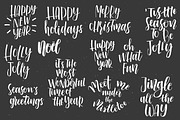 HAPPY
NEW
YEAR
HAPPY
holidays
MERRY
Christmas
'Tis the
season
To Be
Jolly
Holly
Jolly
Noel
HAPPY
New
Year
oh
What
Fun
It's the
Most
Wonderful
Time of
the Year
Season's
greetings
Meet me
under the
Mistletoe
Jingle
all the
WAY